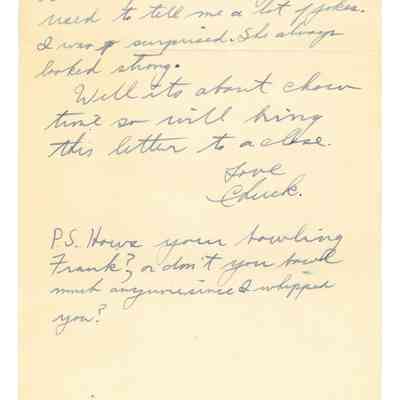 used to tell me a lot of jokes.
I was surprised. She always
looked strong.
Well its about chow
time so will bring
this letter to a close.
Love
Chuck.
P.S. Hows your bowling
Frank?, or don't you bowl
much anymore since I whipped
you?